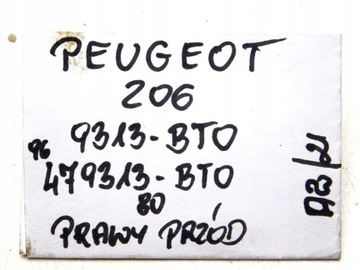 PEUGEOT
206
9313-BTO
96
479313-BTO
80
PRAWY PRZÓD